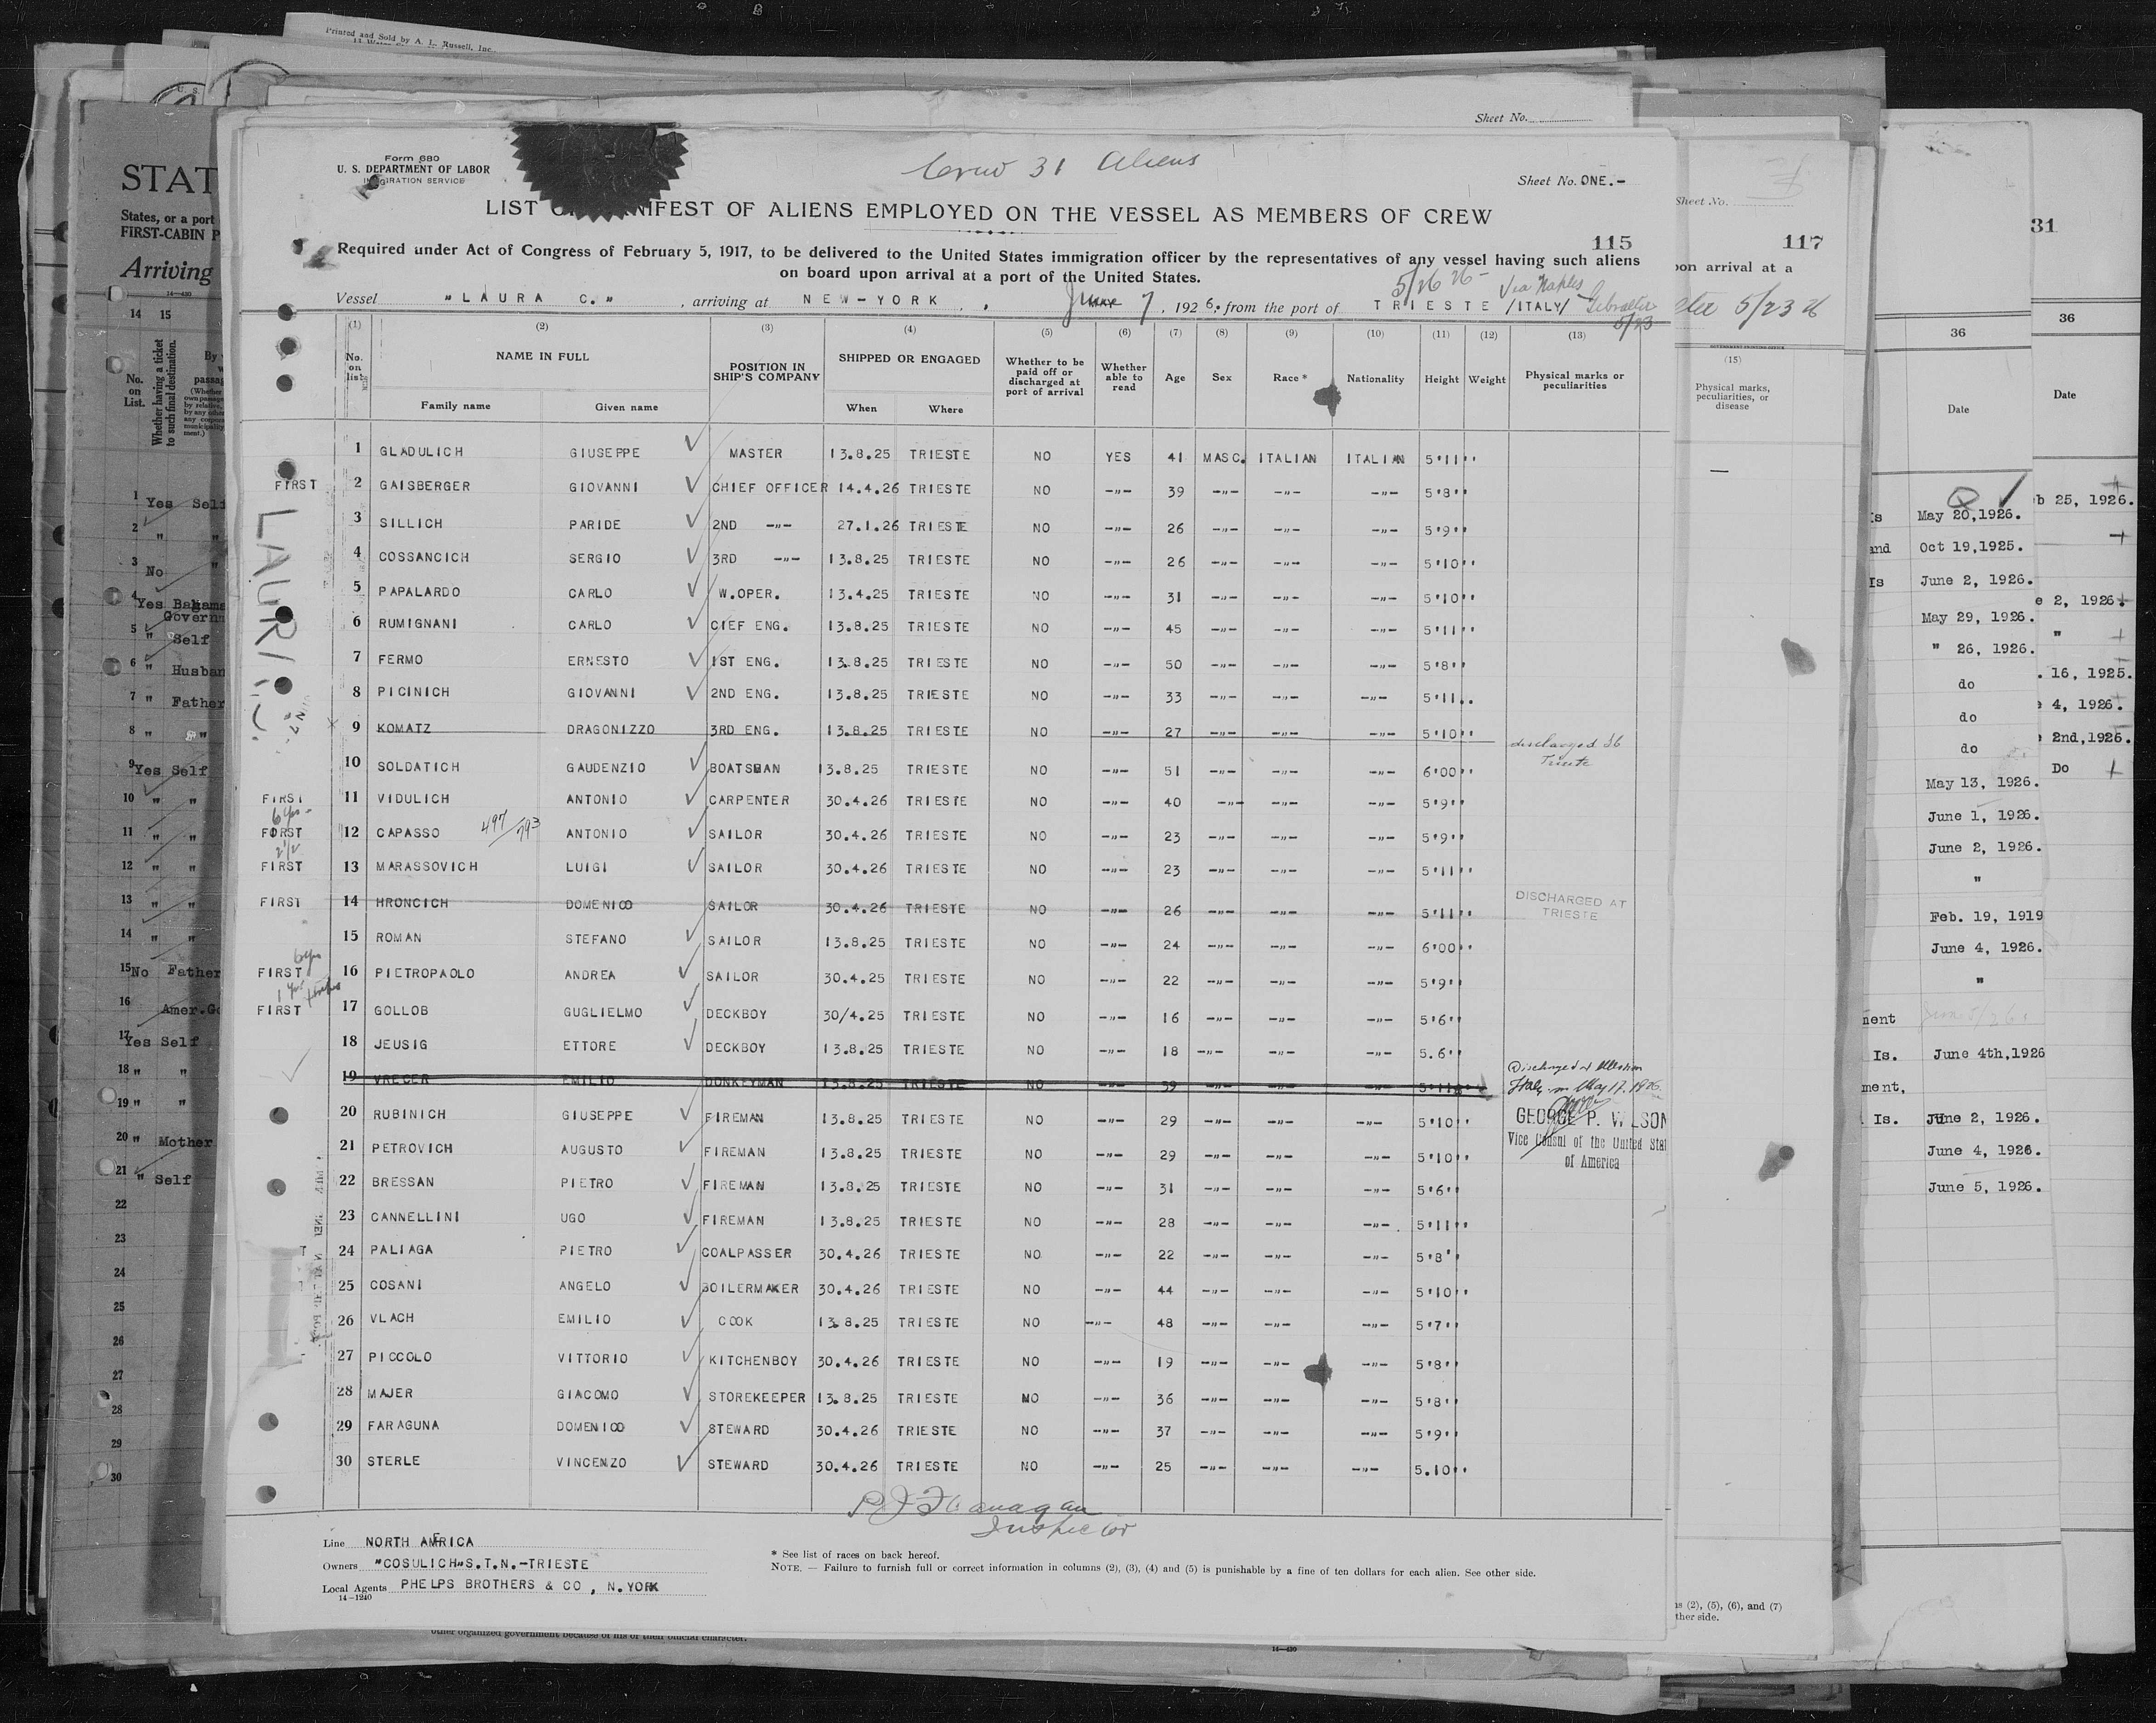 Printed and Sold by A. L. Russell, Inc.,
Sheet No.
Form 680
U. S. DEPARTMENT OF LABOR
IMMIGRATION SERVICE
Crew 31 Aliens
Sheet No. ONE.-
LIST OR MANIFEST OF ALIENS EMPLOYED ON THE VESSEL AS MEMBERS OF CREW
115
Required under Act of Congress of February 5, 1917, to be delivered to the United States immigration officer by the representatives of any vessel having such aliens
on board upon arrival at a port of the United States.
5/26 26 - Via Naples
Vessel "LAURA C." , arriving at NEW-YORK , June 7 , 1926, from the port of TRIESTE /ITALY/ Gibralter
5/23
(1) (2) (3) (4) (5) (6) (7) (8) (9) (10) (11) (12) (13)
No. on list NAME IN FULL POSITION IN SHIP'S COMPANY SHIPPED OR ENGAGED Whether to be paid off or discharged at port of arrival Whether able to read Age Sex Race* Nationality Height Weight Physical marks or peculiarities
Family name Given name When Where
1 GLADULICH GIUSEPPE MASTER 13.8.25 TRIESTE NO YES 41 MASC. ITALIAN ITALIAN 5'11''
FIRST 2 GAISBERGER GIOVANNI CHIEF OFFICER 14.4.26 TRIESTE NO -"- 39 -"- -"- -"- 5'8''
3 SILLICH PARIDE 2ND -"- 27.1.26 TRIESTE NO -"- 26 -"- -"- -"- 5'9''
4 COSSANCICH SERGIO 3RD -"- 13.8.25 TRIESTE NO -"- 26 -"- -"- -"- 5'10''
5 PAPALARDO CARLO W.OPER. 13.4.25 TRIESTE NO -"- 31 -"- -"- -"- 5'10''
6 RUMIGNANI CARLO CIEF ENG. 13.8.25 TRIESTE NO -"- 45 -"- -"- -"- 5'11''
7 FERMO ERNESTO 1ST ENG. 13.8.25 TRIESTE NO -"- 50 -"- -"- -"- 5'8''
8 PICINICH GIOVANNI 2ND ENG. 13.8.25 TRIESTE NO -"- 33 -"- -"- -"- 5'11..
9 KOMATZ DRAGONIZZO 3RD ENG. 13.8.25 TRIESTE NO -"- 27 -"- -"- -"- 5'10'' discharged at
Trieste
10 SOLDATICH GAUDENZIO BOATSMAN 13.8.25 TRIESTE NO -"- 51 -"- -"- -"- 6'00''
FIRST 11 VIDULICH ANTONIO CARPENTER 30.4.26 TRIESTE NO -"- 40 -"- -"- -"- 5'9''
6 yrs -
FIRST 12 CAPASSO 497/793 ANTONIO SAILOR 30.4.26 TRIESTE NO -"- 23 -"- -"- -"- 5'9''
2 1/2
FIRST 13 MARASSOVICH LUIGI SAILOR 30.4.26 TRIESTE NO -"- 23 -"- -"- -"- 5'11''
FIRST 14 HRONCICH DOMENICO SAILOR 30.4.26 TRIESTE NO -"- 26 -"- -"- -"- 5'11'' DISCHARGED AT
TRIESTE
15 ROMAN STEFANO SAILOR 13.8.25 TRIESTE NO -"- 24 -"- -"- -"- 6'00''
6 yrs
FIRST 16 PIETROPAOLO ANDREA SAILOR 30.4.25 TRIESTE NO -"- 22 -"- -"- -"- 5'9''
1 yr
FIRST 17 GOLLOB GUGLIELMO DECKBOY 30/4.25 TRIESTE NO -"- 16 -"- -"- -"- 5'6''
18 JEUSIG ETTORE DECKBOY 13.8.25 TRIESTE NO -"- 18 -"- -"- -"- 5.6''
Discharged at
19 VRECER EMILIO DONKEYMAN 13.8.25 TRIESTE NO -"- 39 -"- -"- -"- 5'11'' Italy. on May 17. 1926.
20 RUBINICH GIUSEPPE FIREMAN 13.8.25 TRIESTE NO -"- 29 -"- -"- -"- 5'10'' GEORGE P. WILSON
21 PETROVICH AUGUSTO FIREMAN 13.8.25 TRIESTE NO -"- 29 -"- -"- -"- 5'10'' Vice Consul of the United Stat
of America
22 BRESSAN PIETRO FIREMAN 13.8.25 TRIESTE NO -"- 31 -"- -"- -"- 5'6''
23 CANNELLINI UGO FIREMAN 13.8.25 TRIESTE NO -"- 28 -"- -"- -"- 5'11''
24 PALIAGA PIETRO COALPASSER 30.4.26 TRIESTE NO -"- 22 -"- -"- -"- 5'8''
25 COSANI ANGELO BOILERMAKER 30.4.26 TRIESTE NO -"- 44 -"- -"- -"- 5'10''
26 VLACH EMILIO COOK 13.8.25 TRIESTE NO -"- 48 -"- -"- -"- 5'7''
27 PICCOLO VITTORIO KITCHENBOY 30.4.26 TRIESTE NO -"- 19 -"- -"- -"- 5'8''
28 MAJER GIACOMO STOREKEEPER 13.8.25 TRIESTE NO -"- 36 -"- -"- -"- 5'8''
29 FARAGUNA DOMENICO STEWARD 30.4.26 TRIESTE NO -"- 37 -"- -"- -"- 5'9''
30 STERLE VINCENZO STEWARD 30.4.26 TRIESTE NO -"- 25 -"- -"- -"- 5.10''
P J Flanagan
Inspector
Line NORTH AMERICA
Owners "COSULICH"S.T.N.-TRIESTE
Local Agents PHELPS BROTHERS & CO, N.YORK
14-1240
* See list of races on back hereof.
NOTE. — Failure to furnish full or correct information in columns (2), (3), (4) and (5) is punishable by a fine of ten dollars for each alien. See other side.
LAURA C.
STAT
States, or a port
FIRST-CABIN P
Arriving
14-430
14 15
No. on List.
Whether having a ticket to such final destination.
1 Yes Self
2 " "
3 No "
4 Yes Bahama
Governm
5 " Self
6 " Husban
7 " Father
8 " "
9 Yes Self
10 " "
11 " "
12 " "
13 " "
14 " "
15 No Father
16 Amer.Go
17 Yes Self
18 " "
19 " "
20 " Mother
21 " Self
22
23
24
25
26
27
28
29
30
other organized government because of his or their official character.
Sheet No.
117
pon arrival at a
5/23 26
(15)
Physical marks, peculiarities, or disease
ns (2), (5), (6), and (7)
ther side.
14-430
36
Date
Is May 20,1926.
and Oct 19,1925.
Is June 2, 1926.
May 29, 1926.
" 26, 1926.
do
do
do
May 13, 1926.
June 1, 1926.
June 2, 1926.
"
Feb. 19, 1919
June 4, 1926.
"
ment June 5/26
Is. June 4th,1926
ment,
Is. June 2, 1926.
June 4, 1926.
June 5, 1926.
31
36
Date
b 25, 1926.
e 2, 1926.
"
. 16, 1925.
4, 1926.
2nd,1926.
Do